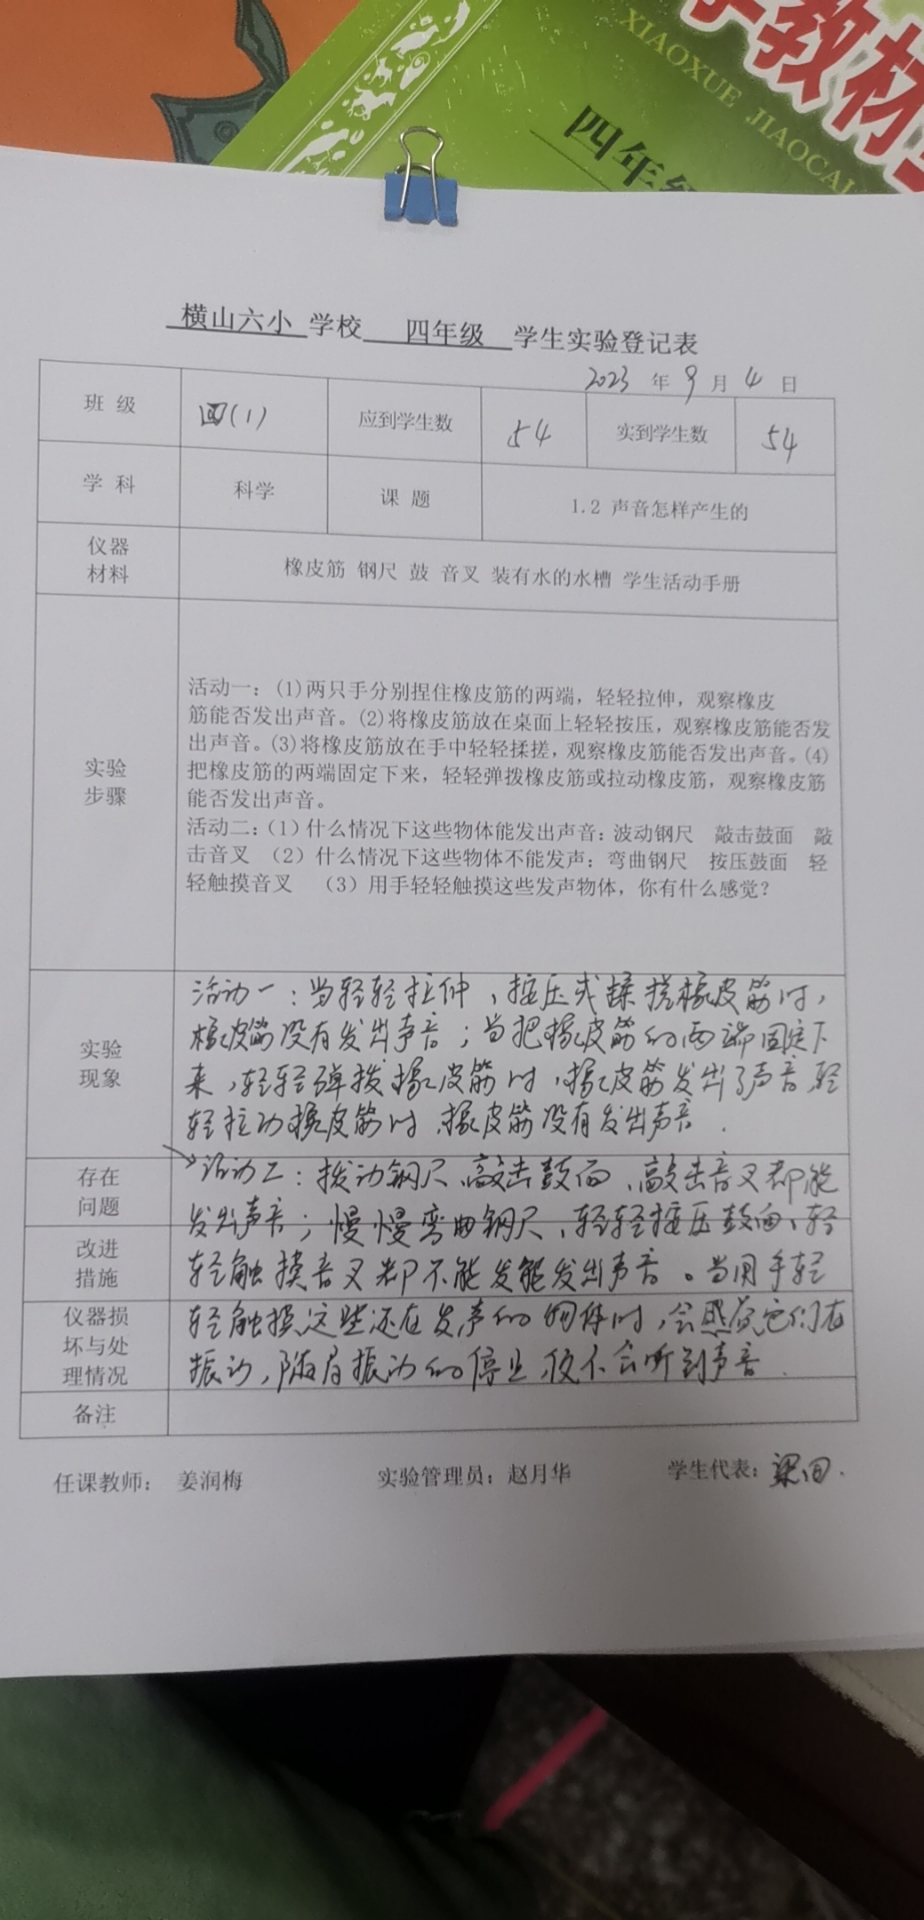 学教材
XIAOXUE JIAOCAI
四年级
横山六小 学校 四年级 学生实验登记表
2023 年 9 月 4 日
班 级 四(1) 应到学生数 54 实到学生数 54
学 科 科学 课 题 1.2 声音怎样产生的
仪器
材料
橡皮筋 钢尺 鼓 音叉 装有水的水槽 学生活动手册
实验
步骤
活动一：(1)两只手分别捏住橡皮筋的两端，轻轻拉伸，观察橡皮
筋能否发出声音。(2)将橡皮筋放在桌面上轻轻按压，观察橡皮筋能否发
出声音。(3)将橡皮筋放在手中轻轻揉搓，观察橡皮筋能否发出声音。(4)
把橡皮筋的两端固定下来，轻轻弹拨橡皮筋或拉动橡皮筋，观察橡皮筋
能否发出声音。
活动二：（1）什么情况下这些物体能发出声音：波动钢尺 敲击鼓面 敲
击音叉 （2）什么情况下这些物体不能发声：弯曲钢尺 按压鼓面 轻
轻触摸音叉 （3）用手轻轻触摸这些发声物体，你有什么感觉？
实验
现象
活动一：当轻轻拉伸、按压或揉搓橡皮筋时，
橡皮筋没有发出声音；当把橡皮筋的两端固定下
来，轻轻弹拨橡皮筋时，橡皮筋发出了声音轻
轻拉动橡皮筋时，橡皮筋没有发出声音.
存在
问题
活动二：拨动钢尺、敲击鼓面、敲击音叉都能
发出声音；慢慢弯曲钢尺、轻轻按压鼓面、轻
改进
措施
轻触摸音叉都不能发能发出声音。当用手轻
仪器损
坏与处
理情况
轻触摸这些还在发声的物体时，会感觉它们在
振动，随着振动的停止，便不会听到声音.
备注
任课教师： 姜润梅 实验管理员：赵月华 学生代表：